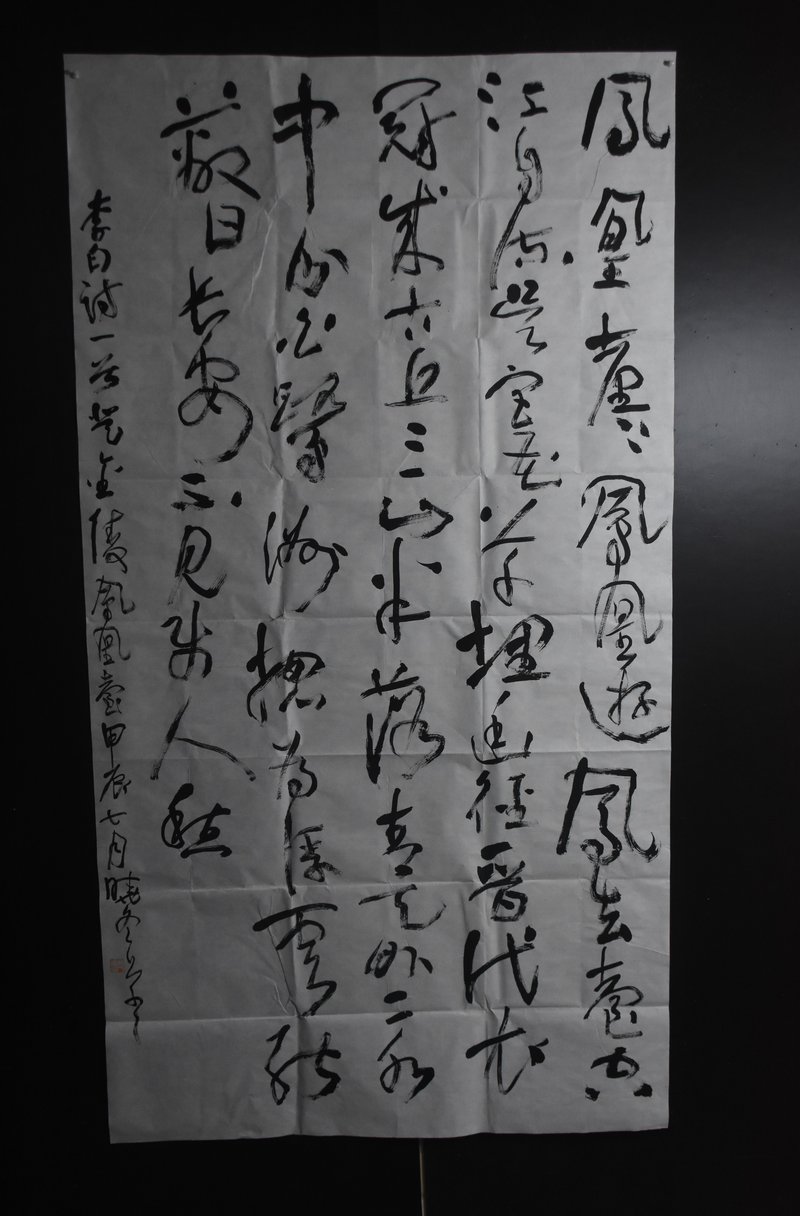 鳳凰臺上鳳凰遊鳳去臺空
江自流吳宮花草埋幽徑晉代衣
冠成古丘三山半落青天外二水
中分白鷺洲總為浮雲能
蔽日長安不見使人愁
李白詩一首登金陵鳳凰臺甲辰七月曉冬